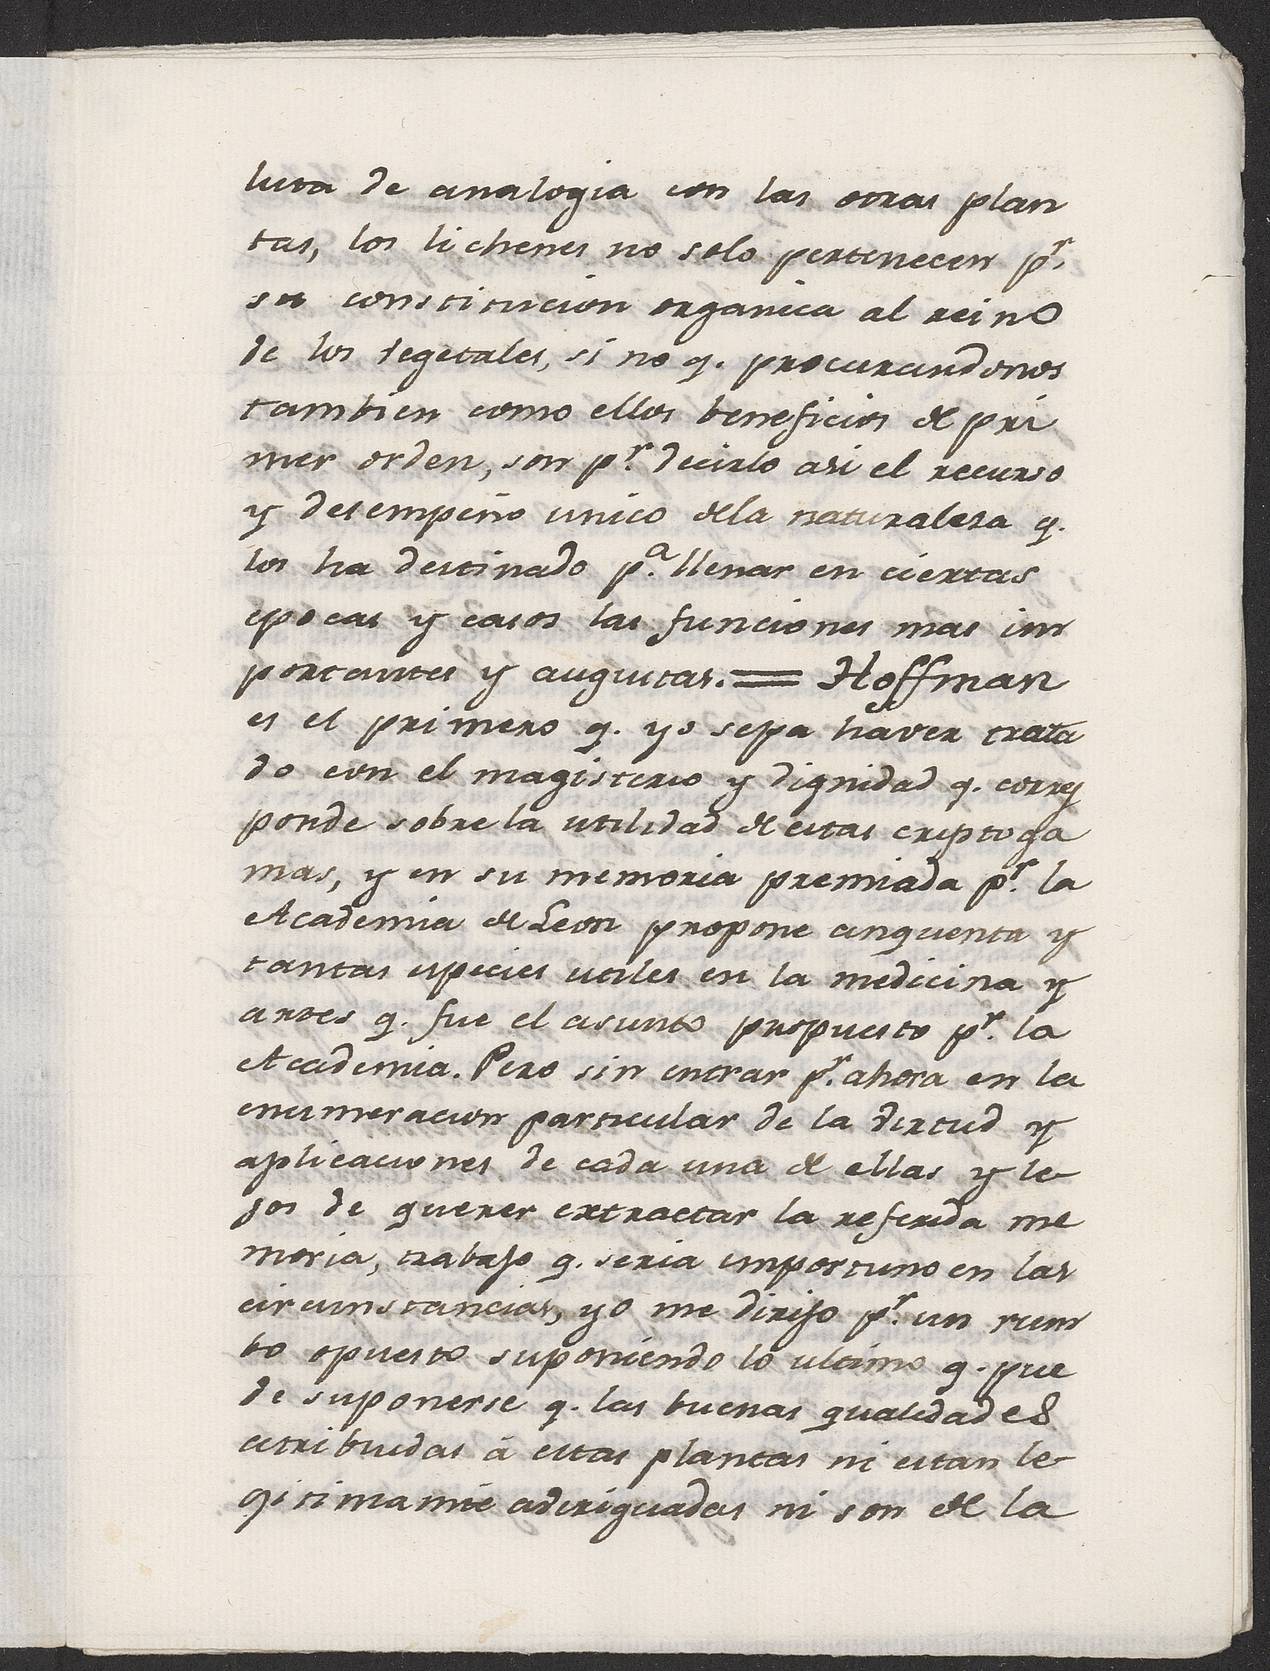 luta de analogia con las otras plan
tas, los lichenes no solo pertenecen pr.
su constitucion organica al reino
de los vegetales, si no q. procurandonos
tambien como ellos beneficios de pri
mer orden, son pr. decirlo asi el recurso
y desempeño unico dela naturalesa q.
los ha destinado pa. llenar en ciertas
epocas y casos las funciones mas im
portantes y augustas. = Hoffman
es el primero q. yo sepa haver trata
do con el magisterio y dignidad q. corres
ponde sobre la utilidad de estas criptoga
mas, y en su memoria premiada pr. la
Academia de Leon propone cinquenta y
tantas especies utiles en la medicina y
artes q. fue el asunto propuesto pr. la
Academia. Pero sin entrar pr. ahora en la
enumeracion particular de la virtud y
aplicaciones de cada una de ellas y le-
jos de querer extractar la referida me
moria, trabajo q. seria importuno en las
circunstancias, yo me dirijo pr. un rum
bo opuesto suponiendo lo ultimo q. pue
de suponerse q. las buenas qualidades
atribuidas á estas plantas ni estan le-
gitimamte averiguadas ni son de la